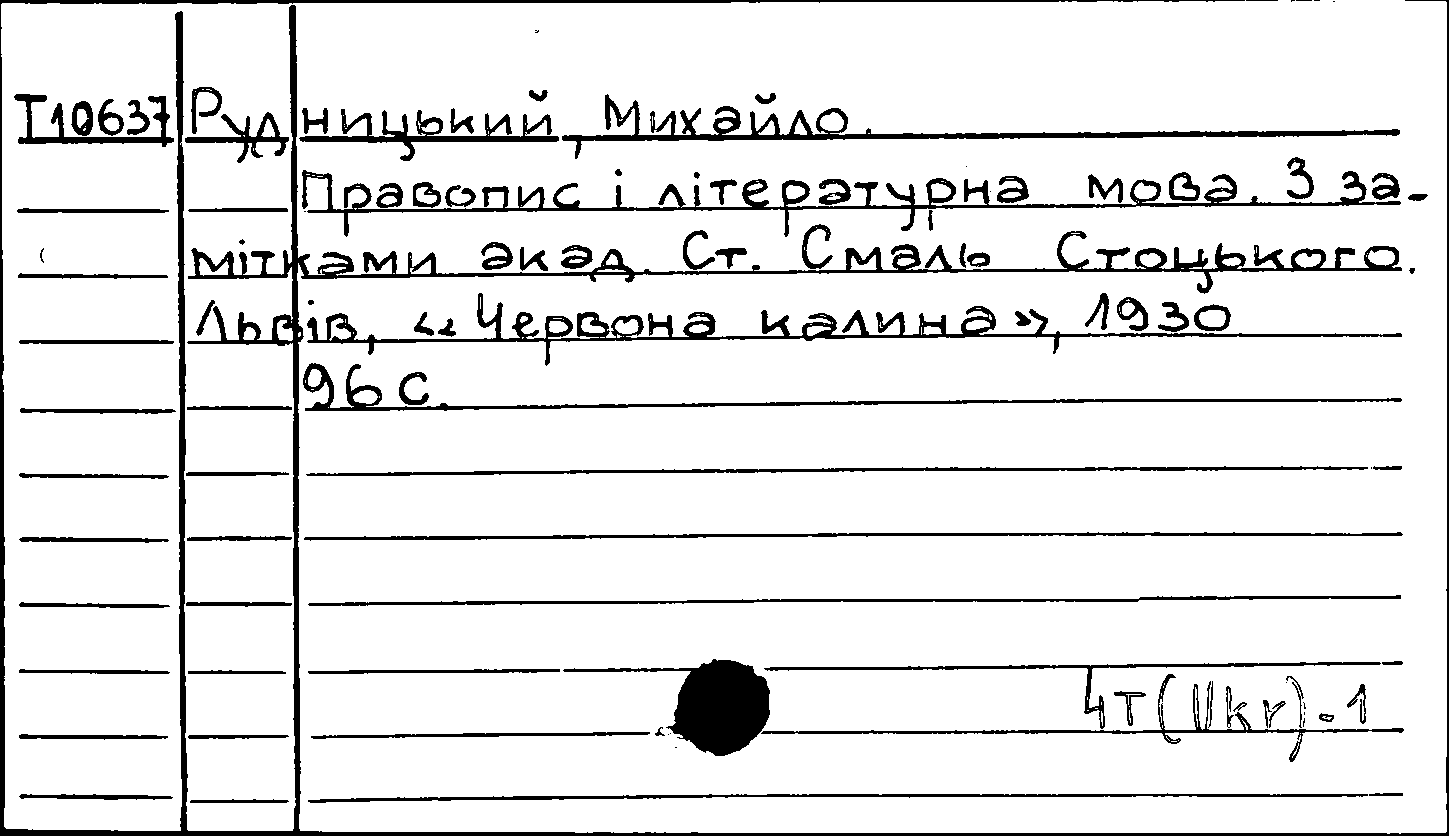 I10637 Рудницький, Михайло.
Правопис і літературна мова. З за-
мітками акад. Ст. Смаль Стоцького.
Львів, «Червона калина», 1930
96 с.
4T(Ukr).1